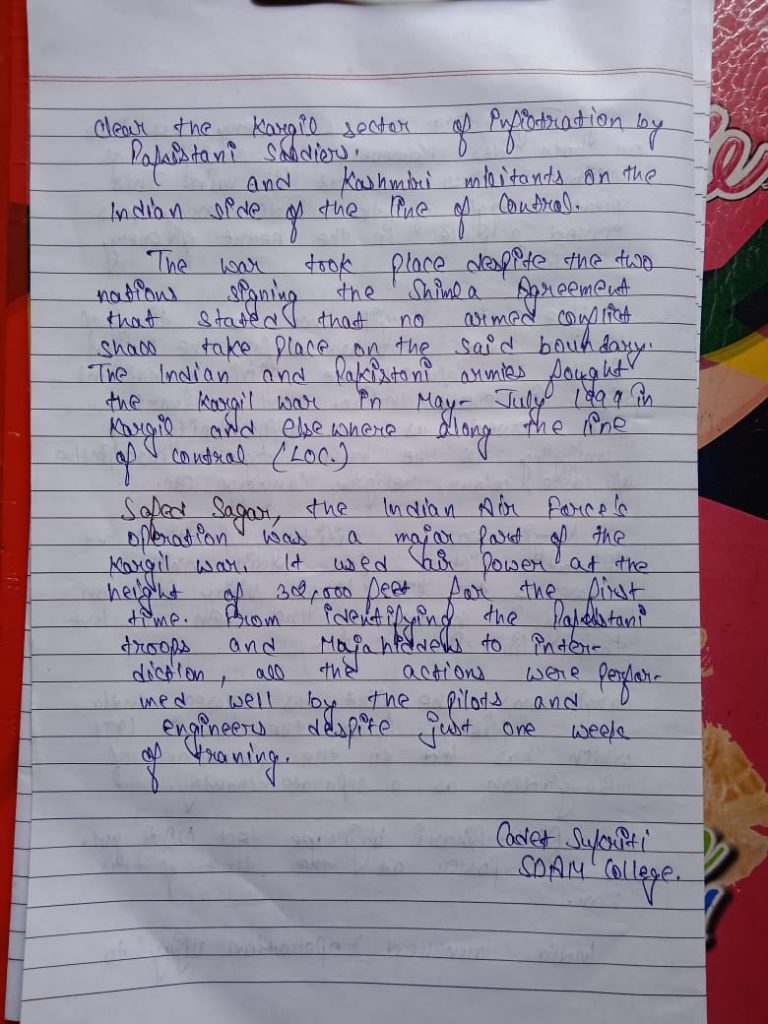 Clear the Kargil sector of Infiltration by
Pakistani Soldiers.
and Kashmiri militants on the
Indian side of the line of Control.
The war took place despite the two
nations signing the Shimla Agreement
that stated that no armed conflict
shall take place on the said boundary.
The Indian and Pakistani armies fought
the Kargil war in May- July 1999 in
Kargil and elsewhere along the line
of control (LOC.)
Safed Sagar, the Indian Air Force's
operation was a major part of the
Kargil war. It used air power at the
height of 32,000 feet for the first
time. From identifying the Pakistani
troops and Majahiddens to inter-
diction, all the actions were perfor-
med well by the pilots and
engineers despite just one week
of traning.
Cadet Sukriti
SDAM College.